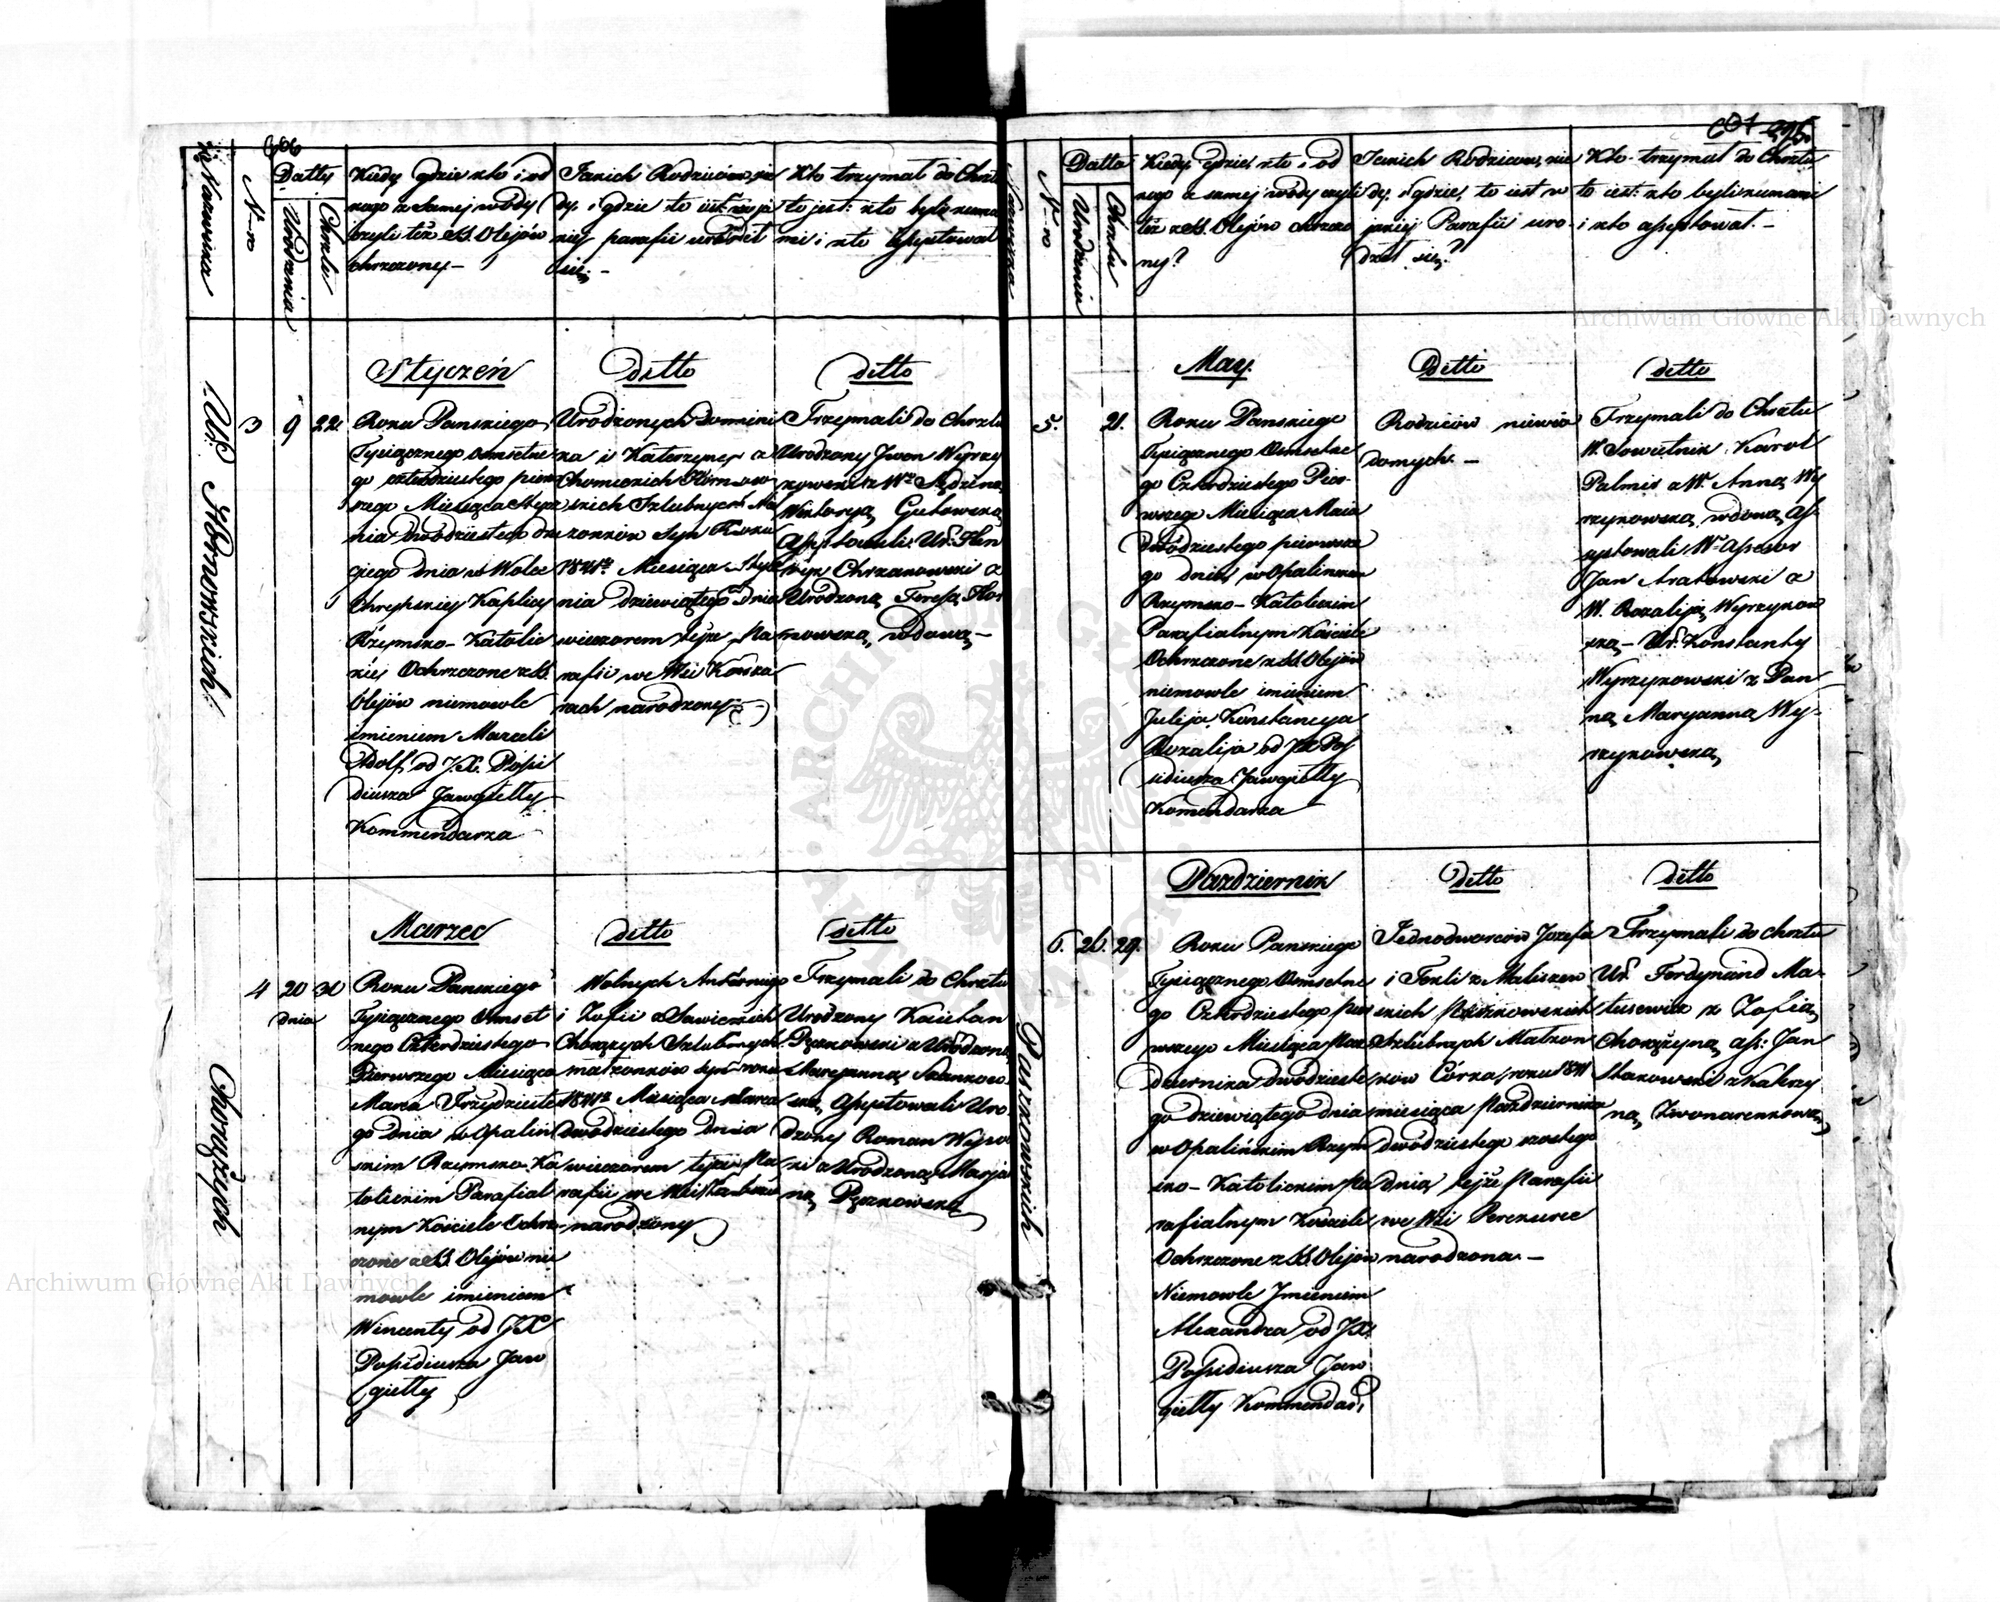 606
Nazwiska
N-ro
Datty
Urodzenia
Chrztu
Kiedy gdzie kto i od
kogo z Samej wody
czyli też z SS. Olejów
chrzczony. –
Jakich Rodziców, kie
dy i gdzie to jest w ja
kiej parafii urodził
się. –
Kto trzymał do Chrztu
to jest: kto byli kuma
mi i kto assystował
Styczeń
ditto
ditto
Ur. Hornowskich
3
9
22.
Roku Panskiego
Tysiącznego Osmsetne
go czterdziestego pierw
szego Miesiąca Stycz
nia dwódziestego dru
giego dnia w Wolce
Chrypskiey Kaplicy
Rzymsko-Katolic
kiey Ochrzczone z SS.
Olejów niemowle
imieniem Marceli
Adolf od J.X. Possi
diusza Jawgiełły
Kommendarza
Urodzonych Domini
ka i Katerzyny z
Chomickich Hornow
skich Szlubnych Mał
żonków Syn Roku
1841º Miesiąca Stycz
nia dziewiątego dnia
wieczorem tejże Pa
rafii we Wsi Kosza
rach narodzony
Trzymali do Chrztu
Urodzony Jwon Wyrzy
kowski z Wą Sędziną
Wiktoryą Gutowską
Assystowali Ur. Hen
ryk Chrzanowski z
Urodzoną Teresą Hor
nowską, wdową –
Marzec
ditto
ditto
Chorążych
4
20
30
dnia
Roku Panskiego
Tysiącznego Osmset
nego Czterdziestego
Pierwszego Miesiąca
Marca Trzydzieste
go dnia w Opalin
skim Rzymsko-Ka
tolickim Parafial
nym Kościele Ochrz
czone z SS. Olejów nie
mowle imieniem
Wincenty od J.X
Possidiusza Jaw
giełły
Wolnych Antoniego
i Zofii z Sawickich
Chorążych Szlubnych
małżonków syn roku
1841º Miesiąca Marca
dwódziestego dnia
wieczorem tejże Pa
rafii we Wsi
narodzony
Trzymali do Chrztu
Urodzony Kajetan
Pęczkowski z Urodzoną
Maryanną
ską, Assystowali Uro
dzony Roman Wyso
ki z Urodzoną Marja
ną Pęczkowską
607
Nazwiska
N-ro
Datta
Urodzenia
Chrztu
Kiedy, gdzie, kto i od
kogo z samej wody czyli
też z SS. Olejów chrzczo
ny?
Jakich Rodziców, kie
dy, i gdzie, to iest w
jakiej Parafii uro-
dził się?
Kto trzymał do Chrztu
to iest: kto byli kumami
i kto assystował. –
May.
Ditto
ditto
5.
21.
Roku Panskiego
Tysiącznego Osmsetne
go Czterdziestego Pier-
wszego Miesiąca Maia
dwódziestego pierwsze
go dnia, w Opalinskim
Rzymsko-Katolickim
Parafialnym Kościele
Ochrzczone z SS. Olejów
niemowle imieniem
Julija Konstancya
Rozalija od J.X. Pos
sidiusza Jawgiełły
Komendarza
Rodziców niewia
domych. –
Trzymali do Chrztu
W. Sowietnik Karol
Palmis z Wą Anną Wy
rzykowską wdową As
systowali Wy Assesor
Jan Arakowski z
W. Rozaliją Wyrzykow
ską – Ur. Konstanty
Wyrzykowski z Pan
ną Maryanną Wy-
rzykowską
Pazdziernik
ditto
ditto
Paszkowskich
6.
26.
29.
Roku Panskiego
Tysiącznego Osmsetne
go Czterdziestego pier
wszego Miesiąca Paz
dziernika dwódzieste
go dziewiątego dnia
w Opalińskim Rzym
sko-Katolickim Pa
rafialnym Kościele
Ochrzczone z SS. Olejów
Niemowle Jmieniem
Alexandra od J.X.
Possidiusza Jaw
giełły Kommendar.
Jednodworców Jozefa
i Tekli z Maliszew
skich Paszkowskich
Szlubnych Małżon
ków Córka, roku 1841
miesiąca Pazdziernika
dwódziestego szostego
dnia, tejże Parafii
we Wsi Perekurce
narodzona. –
Trzymali do chrztu
Ur. Ferdynand Ma-
tusewicz z Zofią
Chorążyną, ass: Jan
Makowski z Katerzy
ną Zwonarenkową
Archiwum Główne Akt Dawnych
Archiwum Główne Akt Dawnych